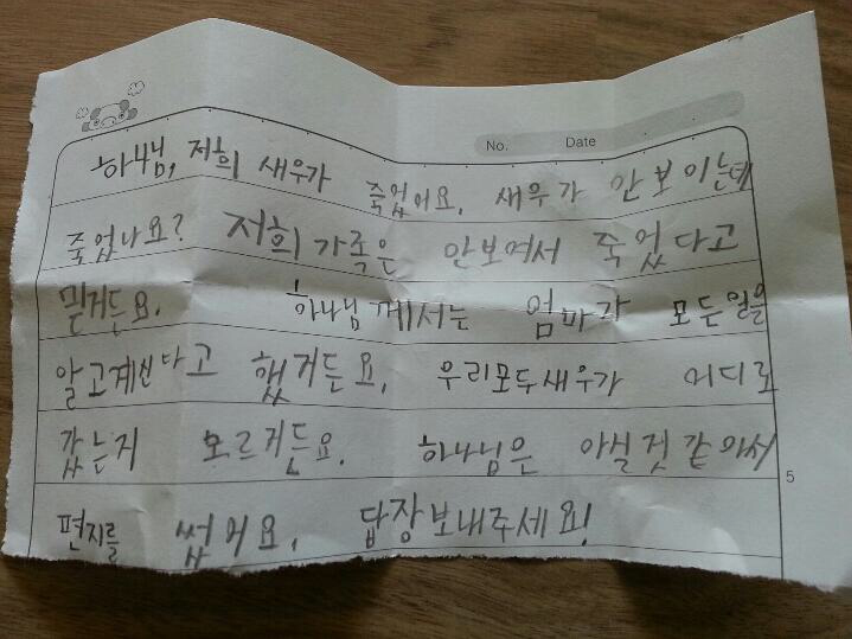 No. Date
하나님, 저희 새우가 죽었어요. 새우가 안보이는데
죽었나요? 저희 가족은 안보여서 죽었다고
믿거든요. 하나님께서는 엄마가 모든일을
알고계신다고 했거든요. 우리모두새우가 어디로
갔는지 모르거든요. 하나님은 아실것 같아서
5
편지를 썼어요. 답장보내주세요!